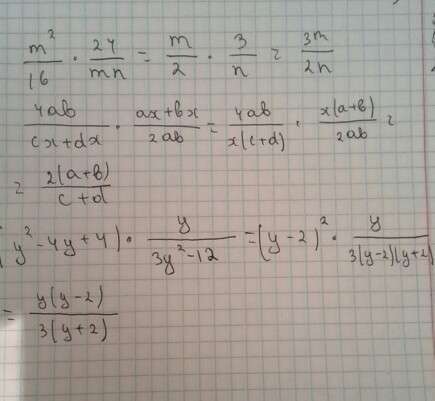 m²/16 · 24/mn = m/2 · 3/n = 3m/2n
4ab/cx+dx · ax+bx/2ab = 4ab/x(c+d) · x(a+b)/2ab =
= 2(a+b)/c+d
(y²-4y+4) · y/3y²-12 = (y-2)² · y/3(y-2)(y+2)
= y(y-2)/3(y+2)